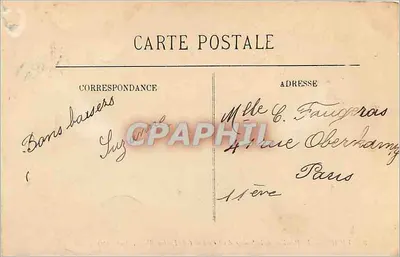 CARTE POSTALE
CORRESPONDANCE
Bons baisers
Suzanne
ADRESSE
Mlle C. Faugeras
41 rue Oberkampf
Paris
11ève
CPAPHIL.com